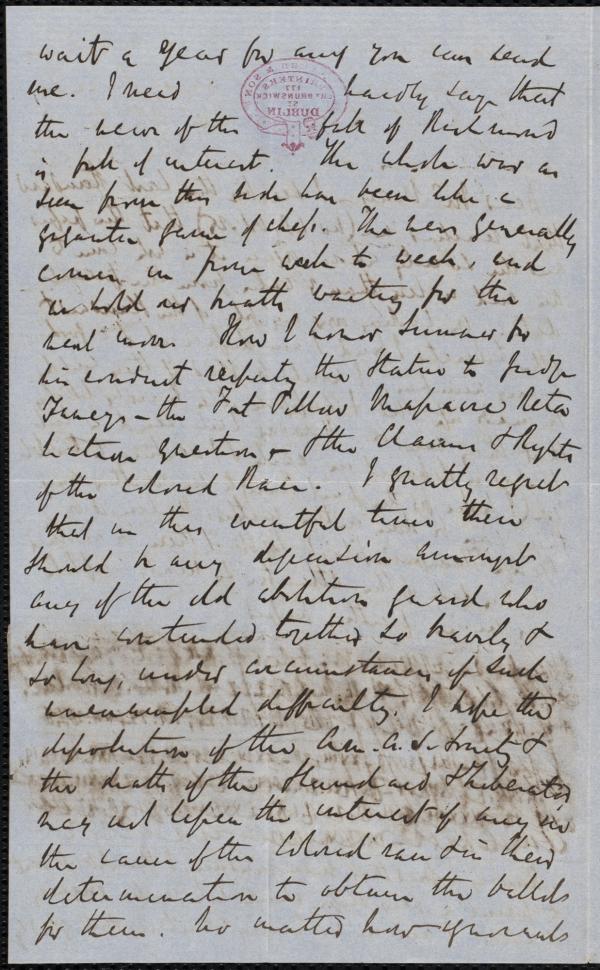 wait a year for any you can send
me. I need hardly say that
the news of the fall of Richmond
is full of interest. The whole war as
seen from this side has been like a
gigantic game of chess. The news generally
comes in from week to week, and
we hold our breath waiting for the
next move. How I honor Sumner for
his conduct respecting the Statue to Judge
Taney – the Fort Pillow Massacre Reta
liation question & the Claims & Rights
of the Colored Race. I greatly regret
that in this eventful time there
should be any dissension amongst
any of the old abolition guard who
have contended together so bravely &
so long, under circumstances of such
unexampled difficulty. I hope the
dissolution of the Am. A. S. Society &
the death of the Standard & Liberator
may not lessen the interest of any in
the cause of the Colored race & in their
determination to obtain the ballot
for them. No matter how ignorant
& SON
PRINTERS
177
BRUNSWICK
ST
DUBLIN